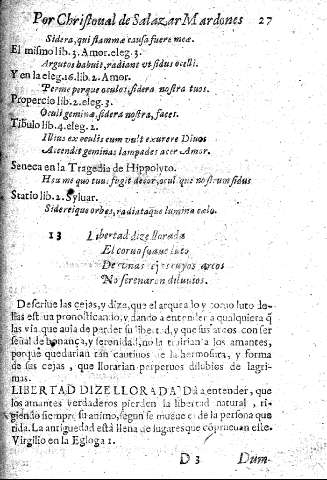 Por Christoual de Salazar Mardones 27
Sidera, qui flammæ causa fuere meæ.
El mismo lib. 3. Amor. eleg. 3.
Argutos habuit, radiant vt sidus ocelli.
Y en la eleg. 16. lib. 2. Amor.
Perme perque oculos, sidera nostra tuos.
Propercio lib. 2. eleg. 3.
Oculi geminæ, sidera nostra, faces.
Tibulo lib. 4. eleg. 2.
Illius ex oculis cum vult exurere Diuos
Accendit geminas lampades acer Amor.
Seneca en la Tragedia de Hippolyto.
quo tuus fugit decor, nostrum sidus
Statio lib. 2. Syluar.
Sidereique orbes, radiataque lumina cælo.
13 Libertad dize llorada
El coruo suaue luto
De vnas cuyos arcos
No serenaron diluuios.
Descriue las cejas, y dize, que el arquea lo y coruo luto de-
llas estaua pronosticando, y dando a entender a qualquiera q̃
las via que auia de perder su libertad, y que sus arcos con ser
señal de bonança, y serenidad, no la a los amantes,
porque quedarian tan cautiuos de la hermosura, y forma
de sus cejas, que llorarian perpetuos diluuios de lagri-
mas.
LIBERTAD DIZE LLORADA Da a entender, que
los amantes verdaderos pierden la libertad natural, ri-
giendo siempre su animo, segun se mueue el de la persona que
rida. La antiguedad está llena de lugares que cõprueuan este.
Virgilio en la Egloga 1.
D 3 Dum-